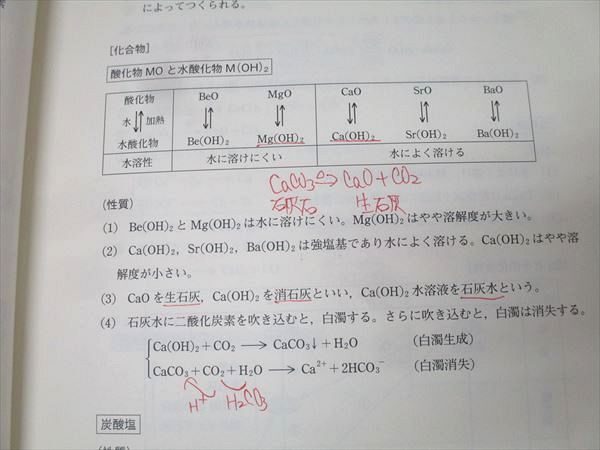 によってつくられる。
[化合物]
酸化物 MO と水酸化物 M(OH)₂
酸化物 BeO MgO CaO SrO BaO
水 ⇅ 加熱 ⇅ ⇅ ⇅ ⇅ ⇅
水酸化物 Be(OH)₂ Mg(OH)₂ Ca(OH)₂ Sr(OH)₂ Ba(OH)₂
水溶性 水に溶けにくい 水によく溶ける
CaCO₃ ⇄ CaO + CO₂
石灰石 生石灰
(性質)
(1) Be(OH)₂ と Mg(OH)₂ は水に溶けにくい。Mg(OH)₂ はやや溶解度が大きい。
(2) Ca(OH)₂, Sr(OH)₂, Ba(OH)₂ は強塩基であり水によく溶ける。Ca(OH)₂ はやや溶
解度が小さい。
(3) CaO を生石灰, Ca(OH)₂ を消石灰といい, Ca(OH)₂ 水溶液を石灰水という。
(4) 石灰水に二酸化炭素を吹き込むと, 白濁する。さらに吹き込むと, 白濁は消失する。
Ca(OH)₂ + CO₂ ⟶ CaCO₃↓ + H₂O (白濁生成)
CaCO₃ + CO₂ + H₂O ⟶ Ca²⁺ + 2HCO₃⁻ (白濁消失)
H⁺ H₂CO₃
炭酸塩
(性質)